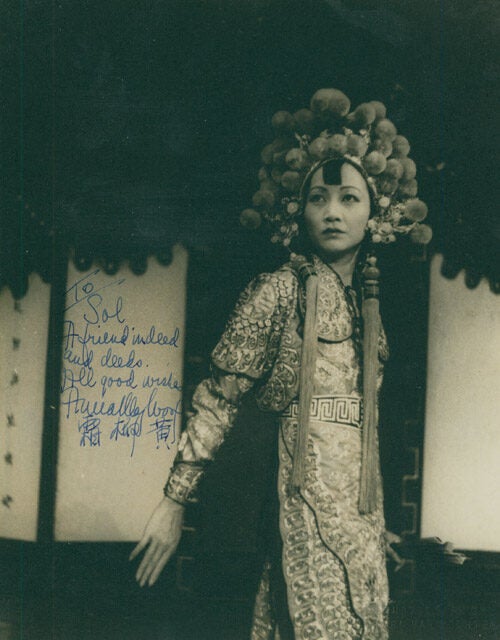 To
Sol
A friend indeed
and deeds.
All good wishes
Anna May Wong
霜柳黃